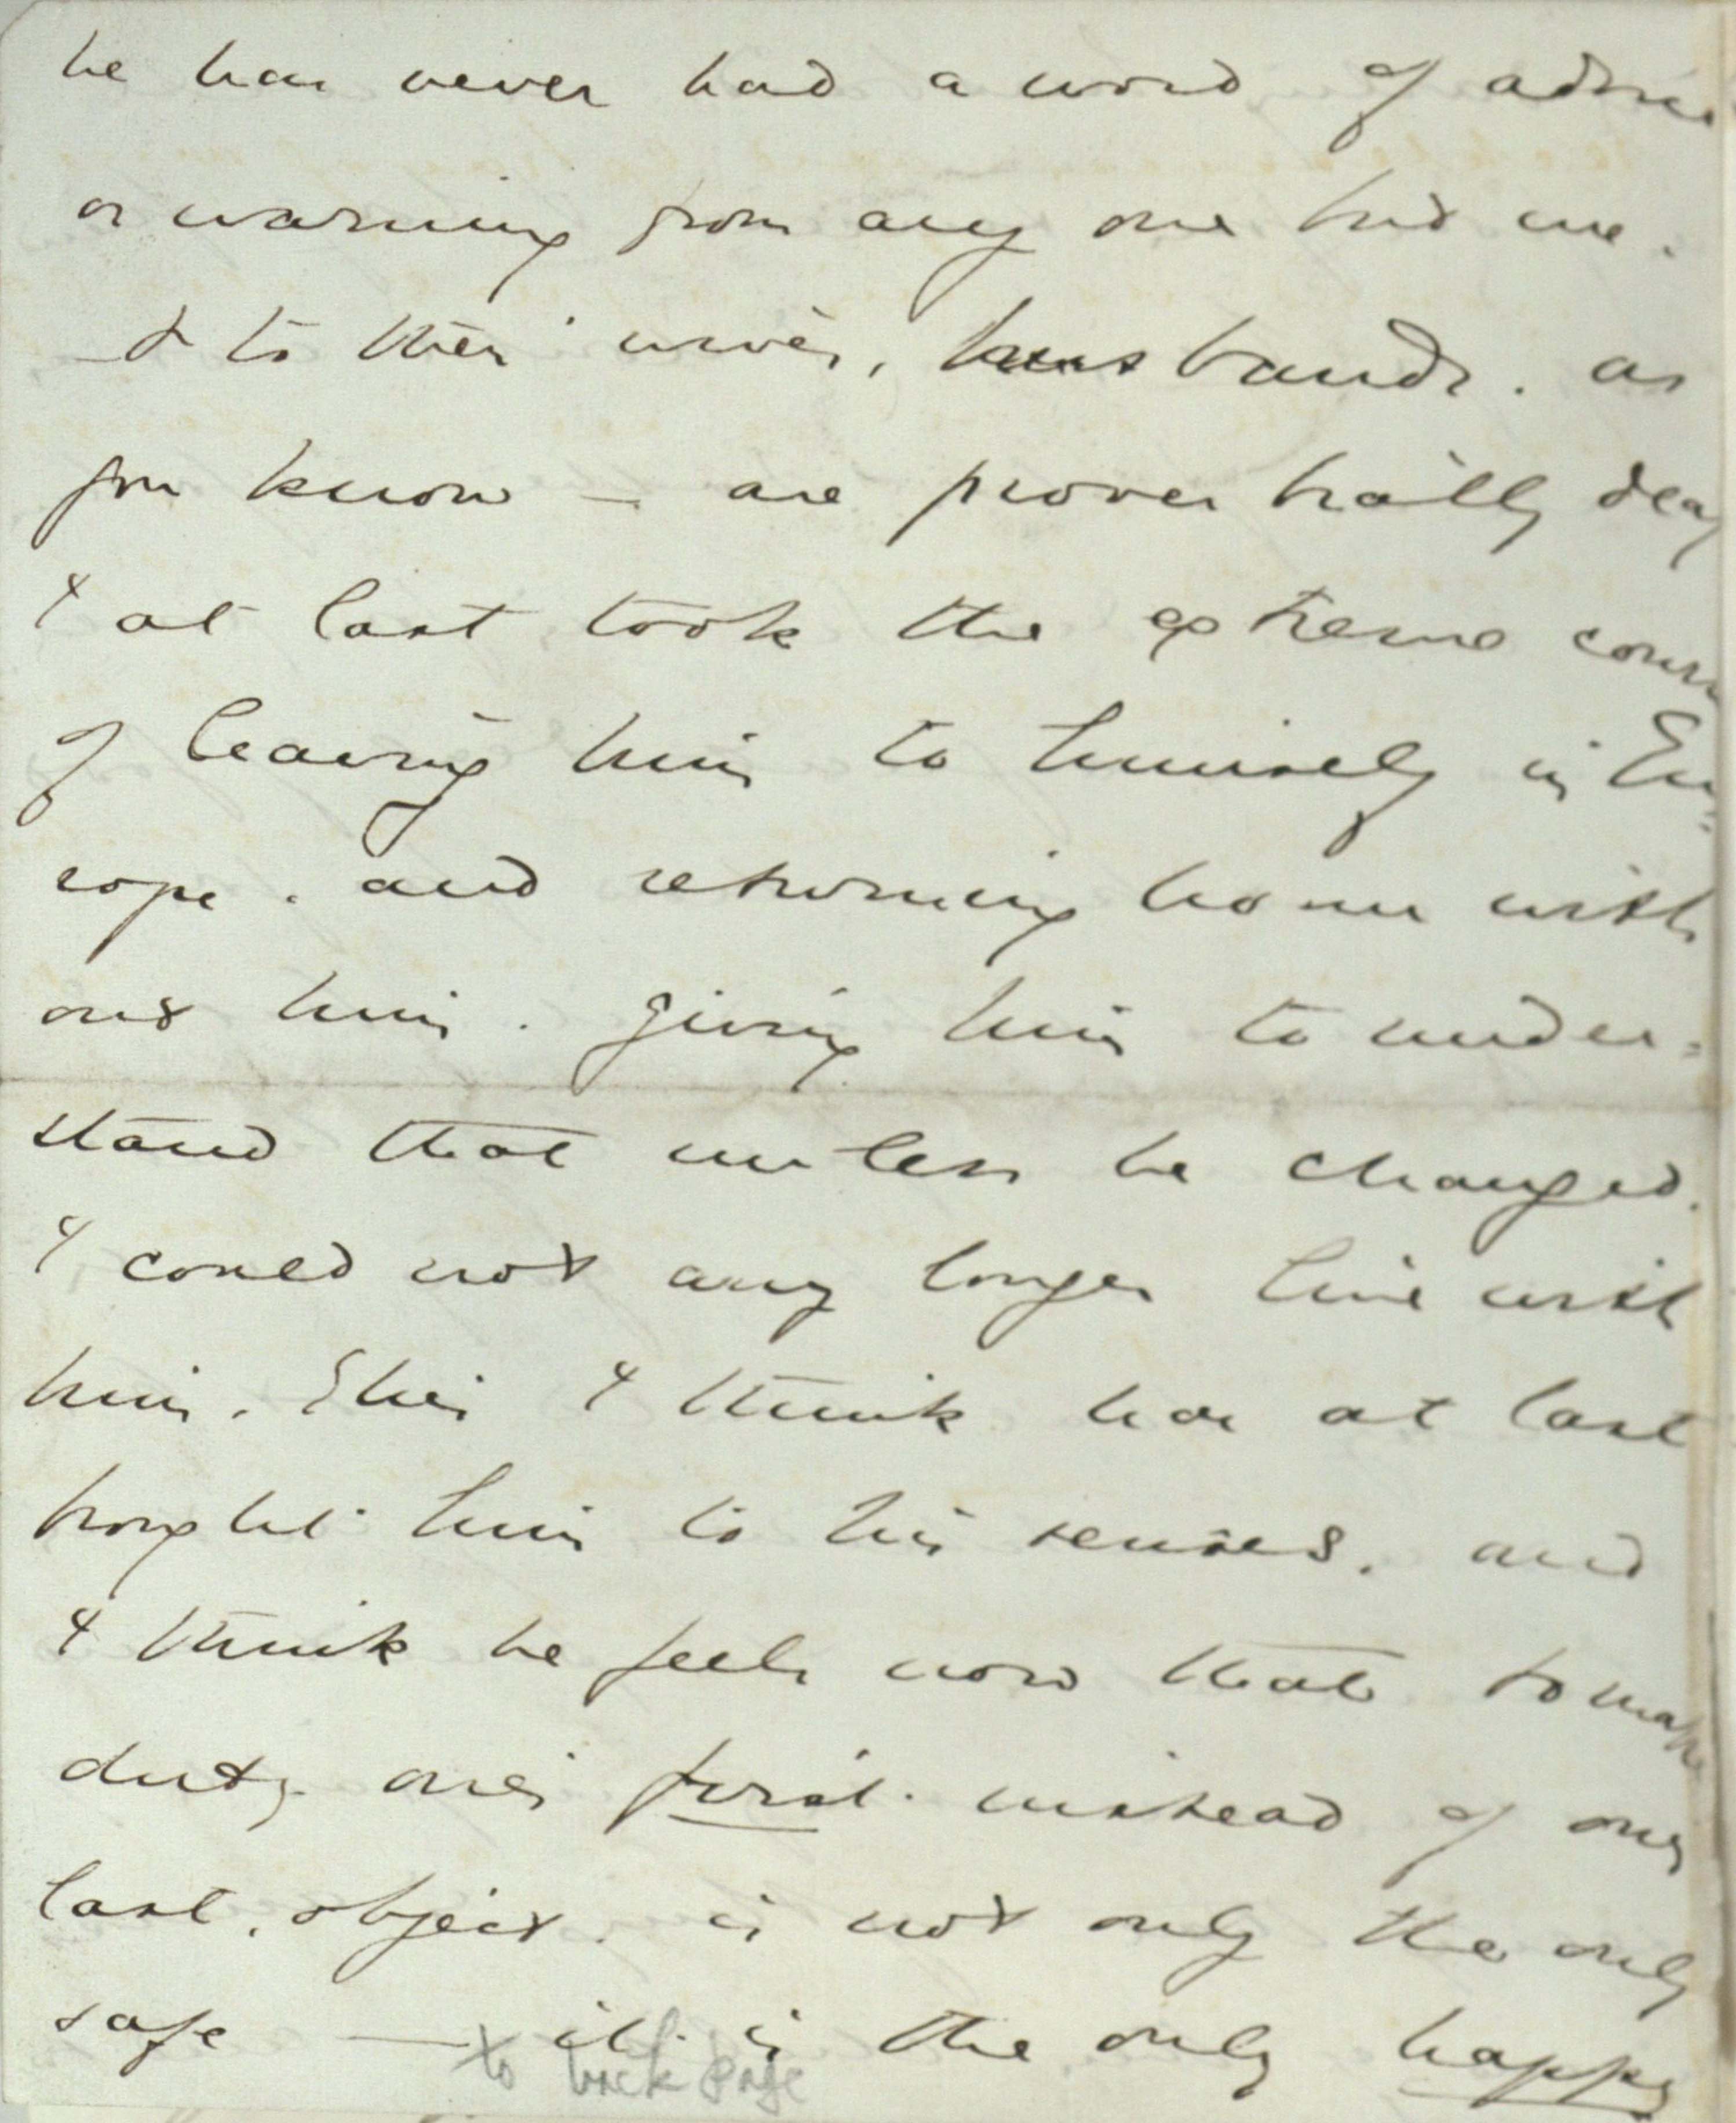 he has never had a word of advice
or warning from any one but me.
& to their wives, husbands. as
you know – are proverbially deaf
I at last took the extreme course
of leaving him to himself in Eu-
rope. and returning home with
out him. giving him to under-
stand that unless he changed.
I could not any longer live with
him. This I think has at last
brought him to his senses. and
I think he feels now that to make
duty one's first. instead of one's
last. object. is not only the only
safe — it is the only happy
to back page